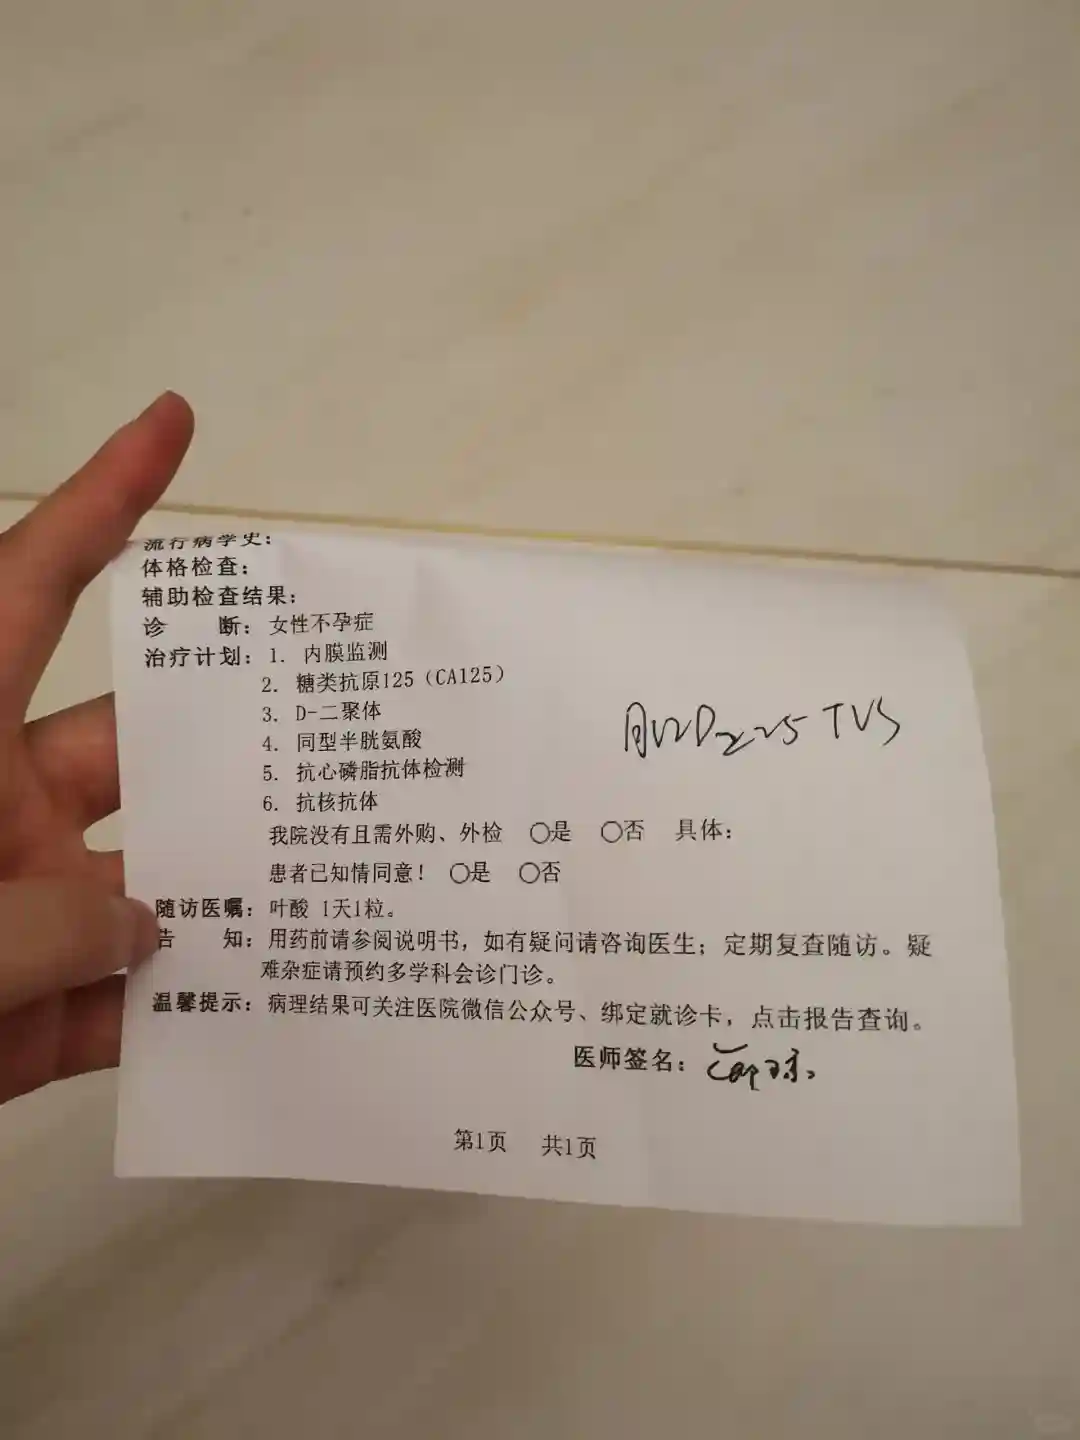 流行病学史：
体格检查：
辅助检查结果：
诊 断：女性不孕症
治疗计划：1. 内膜监测
2. 糖类抗原125（CA125）
3. D-二聚体
4. 同型半胱氨酸
5. 抗心磷脂抗体检测
6. 抗核抗体
TVS
我院没有且需外购、外检 ○是 ○否 具体：
患者已知情同意！ ○是 ○否
随访医嘱：叶酸 1天1粒。
告 知：用药前请参阅说明书，如有疑问请咨询医生；定期复查随访。疑
难杂症请预约多学科会诊门诊。
温馨提示：病理结果可关注医院微信公众号、绑定就诊卡，点击报告查询。
医师签名：
第1页 共1页